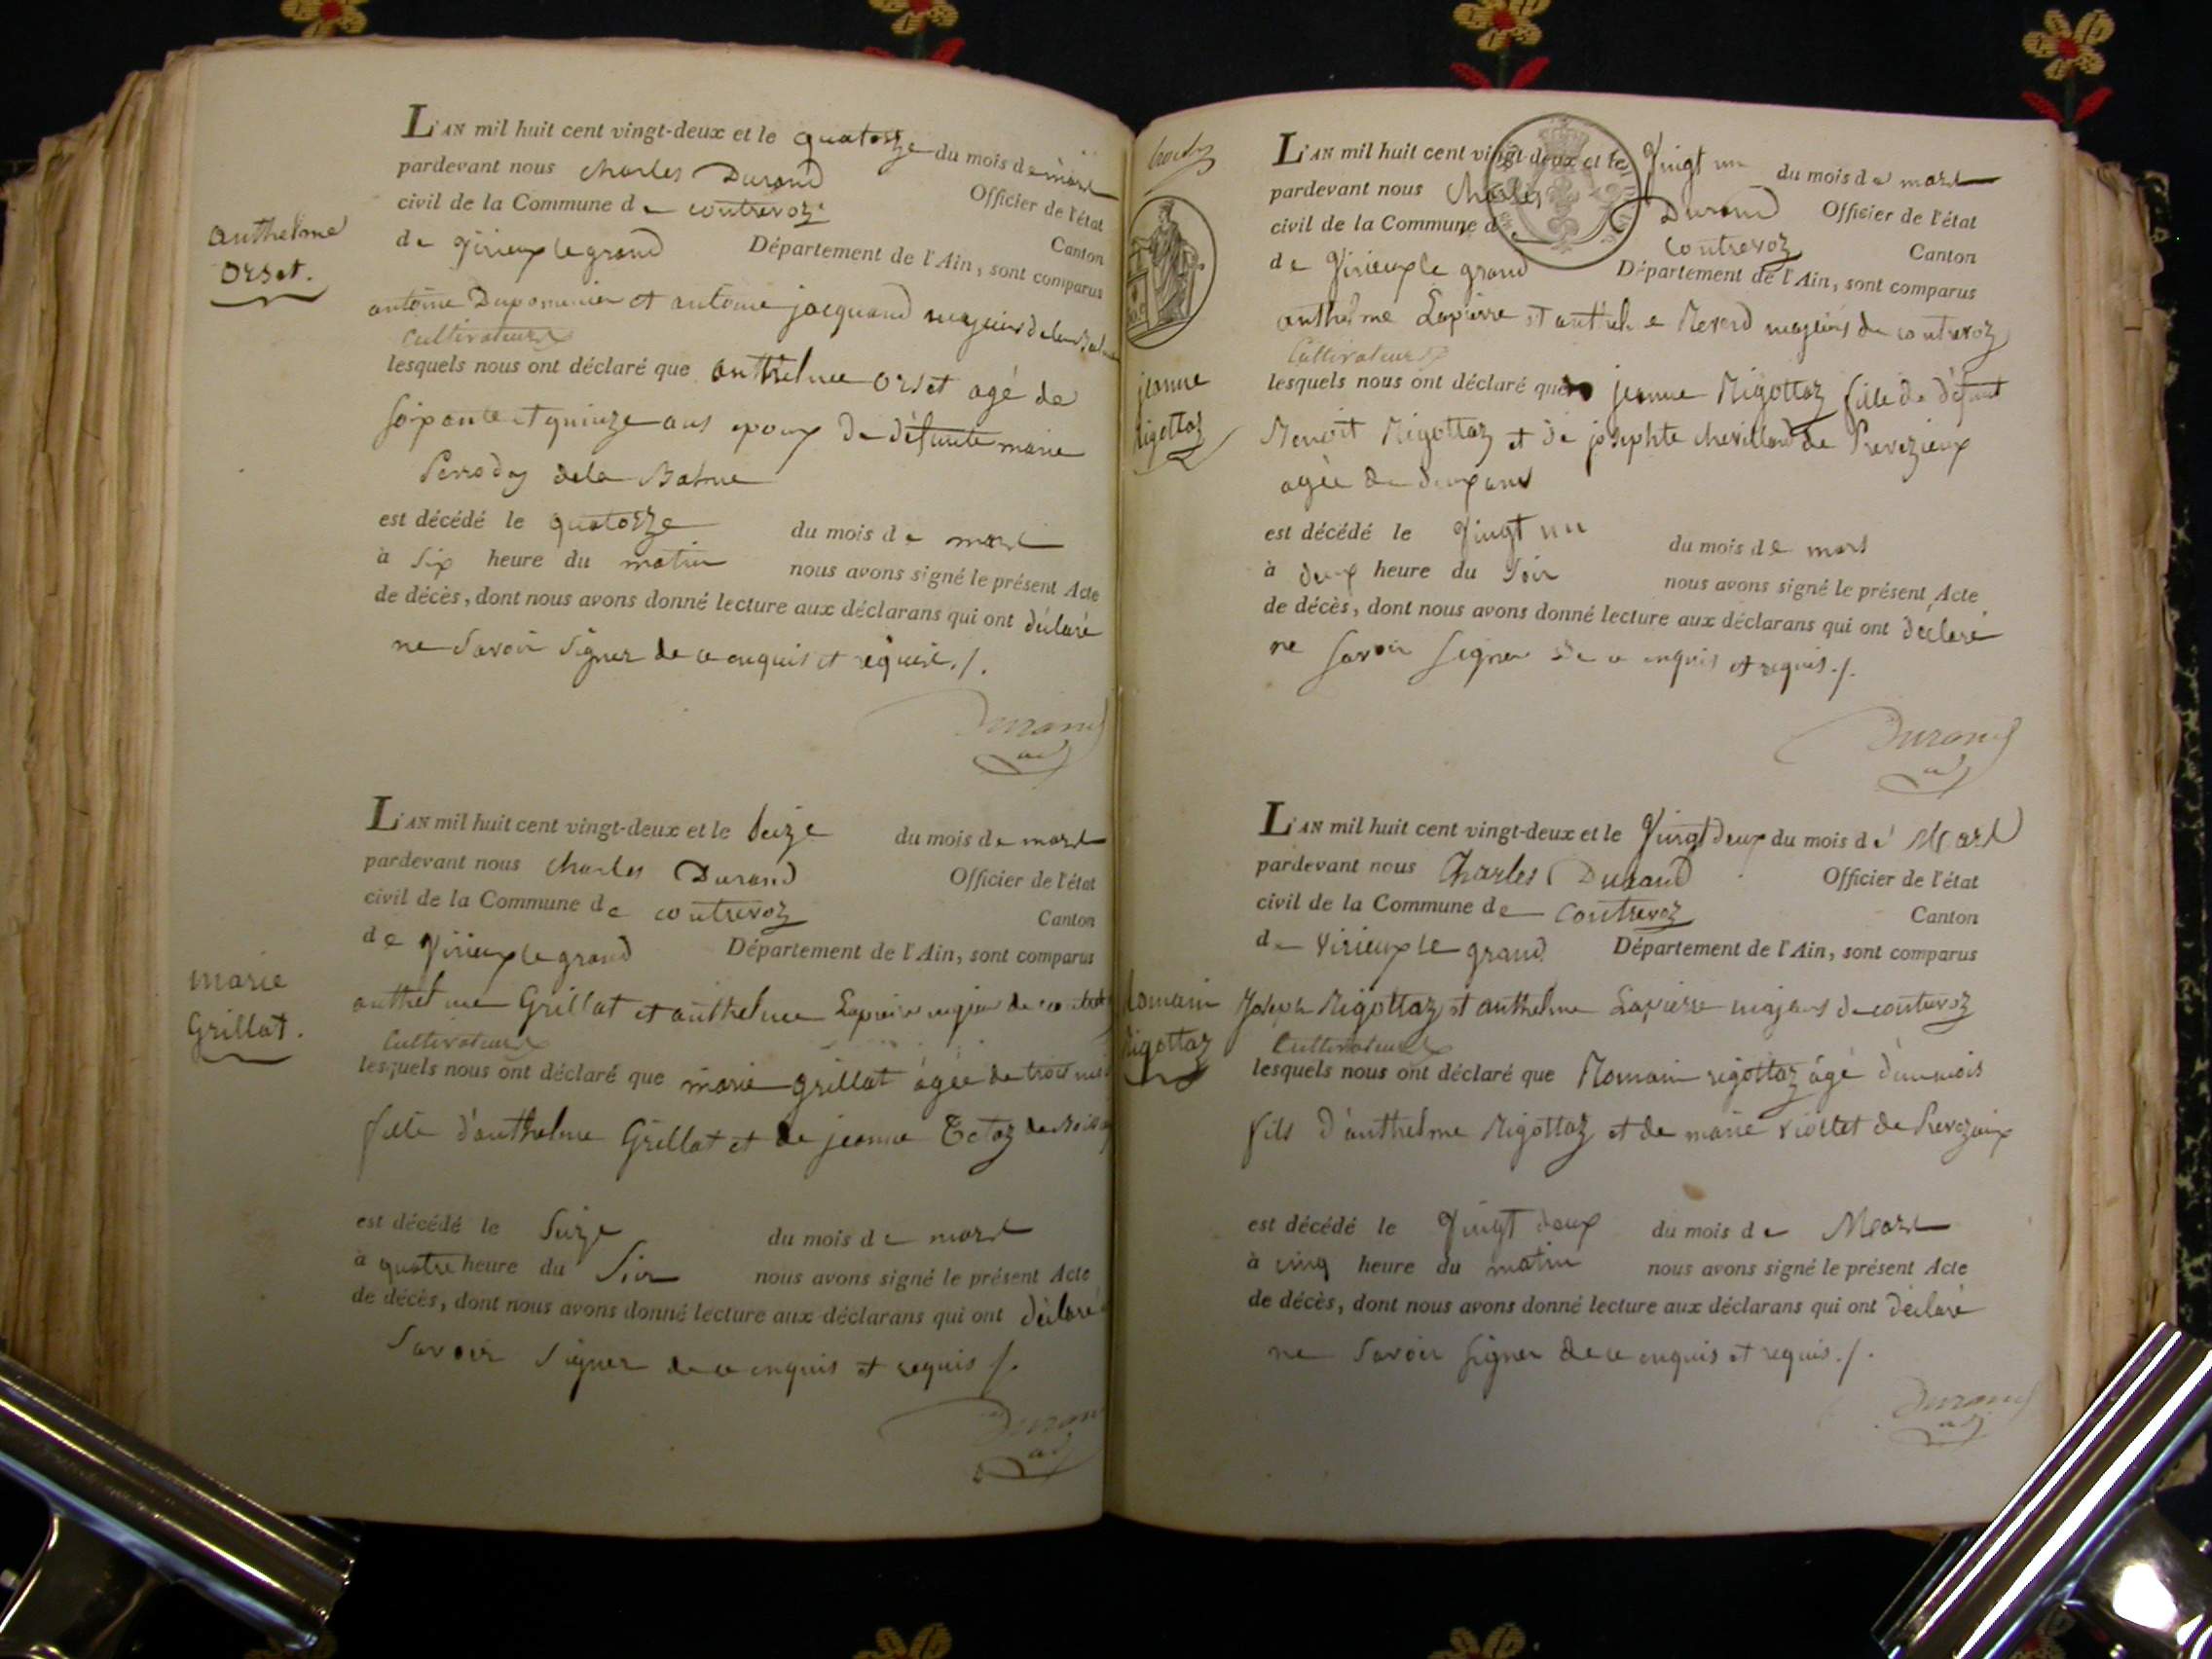 L'AN mil huit cent vingt-deux et le quatorze du mois de mars
pardevant nous Charles Durand Officier de l'état
civil de la Commune de contrevoz Canton
de Virieux le grand Département de l'Ain, sont comparus
anthelme
orset.
antoine et antoine jacquand majeurs de la Balme
Cultivateurs
lesquels nous ont déclaré que anthelme orset agé de
soixante et quinze ans epoux de défunte marie
Perrody de la Balme
est décédé le quatorze du mois de mars
à six heure du matin nous avons signé le présent Acte
de décès, dont nous avons donné lecture aux déclarans qui ont déclaré
ne savoir signer de ce enquis et requis ./.
Durand
L'AN mil huit cent vingt-deux et le seize du mois de mars
pardevant nous Charles Durand Officier de l'état
civil de la Commune de contrevoz Canton
de Virieux le grand Département de l'Ain, sont comparus
marie
Grillat.
anthelme Grillat et anthelme Lapierre majeurs de
Cultivateurs
lesquels nous ont déclaré que marie grillat agée de trois
fille d'anthelme Grillat et de jeanne Tetaz de
est décédé le seize du mois de mars
à quatre heure du soir nous avons signé le présent Acte
de décès, dont nous avons donné lecture aux déclarans qui ont déclaré
savoir signer de ce enquis et requis ./.
Durand
L'AN mil huit cent vingt-deux et le Vingt un du mois de mars
pardevant nous Charles Durand Officier de l'état
civil de la Commune de contrevoz Canton
de Virieux le grand Département de l'Ain, sont comparus
anthelme Lapierre et anthelme majeurs de contrevoz
Cultivateurs
jeanne
Rigottaz
lesquels nous ont déclaré que jeanne Rigottaz fille de défunt
Benoit Rigottaz et de josephte chevillard de Prevezieux
agée de deux ans
est décédé le Vingt un du mois de mars
à deux heure du soir nous avons signé le présent Acte
de décès, dont nous avons donné lecture aux déclarans qui ont déclaré
ne savoir signer de ce enquis et requis ./.
Durand
L'AN mil huit cent vingt-deux et le Vingt deux du mois de Mars
pardevant nous Charles Durand Officier de l'état
civil de la Commune de Contrevoz Canton
de Virieux le grand Département de l'Ain, sont comparus
Romain
Rigottaz
Joseph Rigottaz et anthelme Lapierre majeurs de contrevoz
Cultivateurs
lesquels nous ont déclaré que Romain rigottaz âgé d'un mois
fils d'anthelme Rigottaz et de marie Viollet de Prevezieux
est décédé le Vingt deux du mois de Mars
à cinq heure du matin nous avons signé le présent Acte
de décès, dont nous avons donné lecture aux déclarans qui ont déclaré
ne savoir signer de ce enquis et requis ./.
Durand